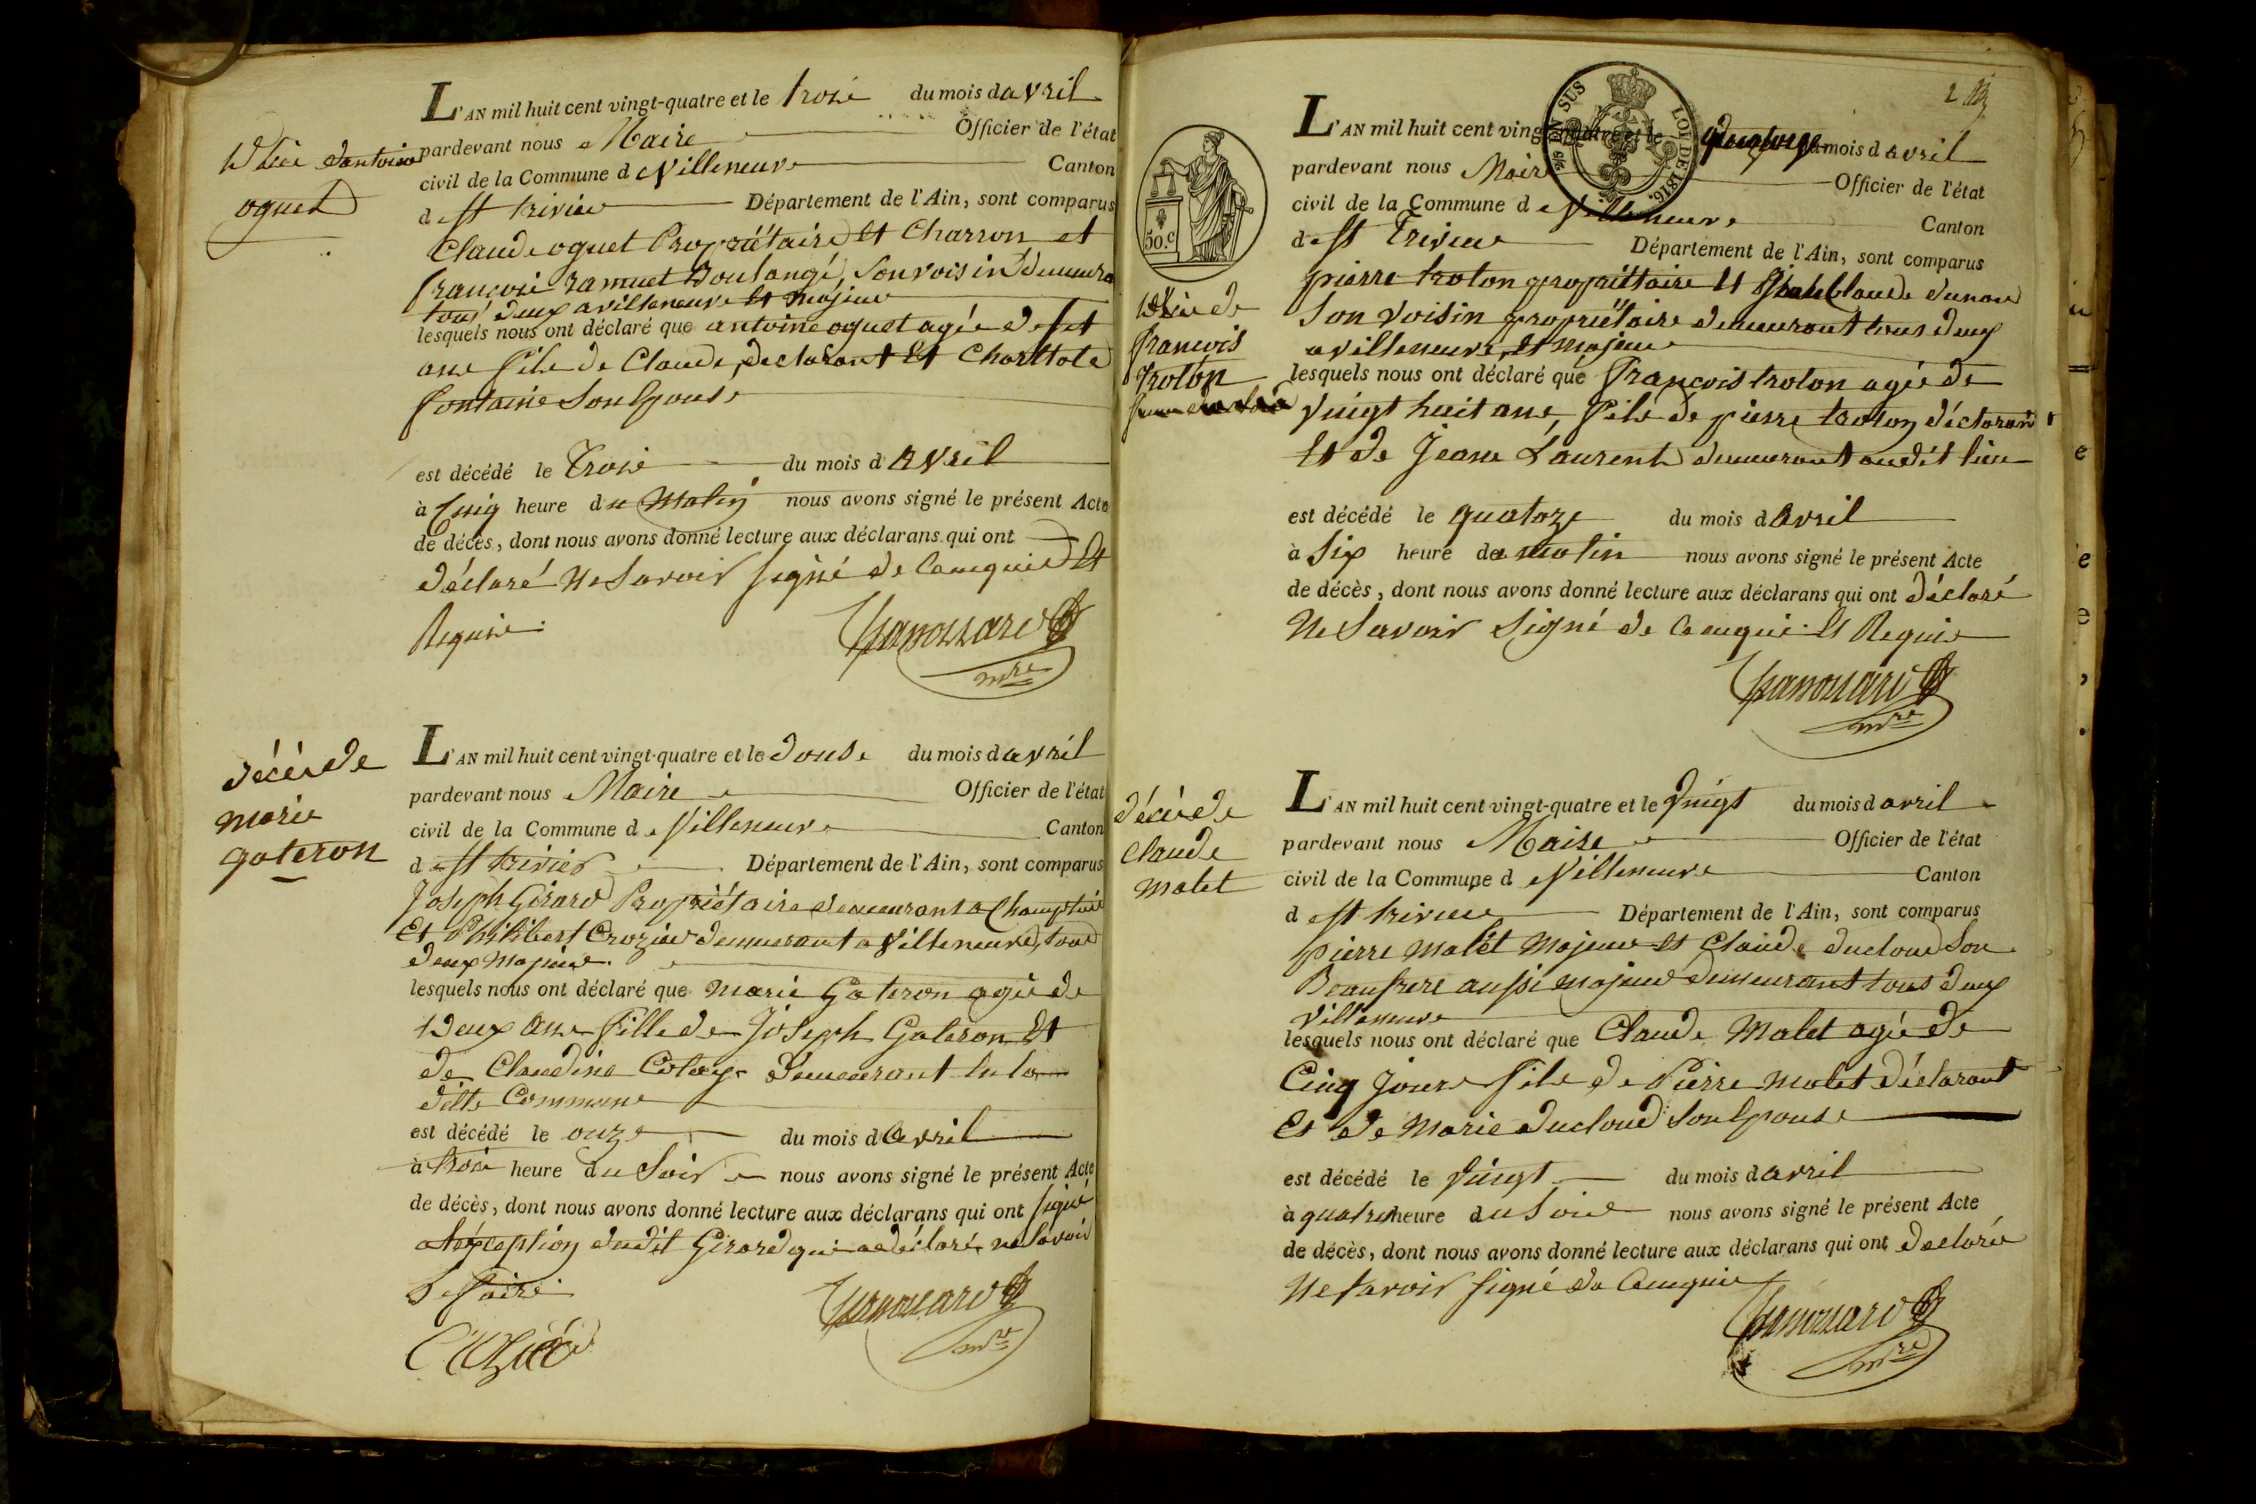 L'AN mil huit cent vingt-quatre et le trois du mois d avril
pardevant nous Maire Officier de l'état
civil de la Commune d e Villeneuve Canton
d e St trivier Département de l'Ain, sont comparus
Claude oguet Propriétaire Et Charron et
françois ramuet Boulangé, Son voisin demeura
tous deux a villeneuve Et majeur
lesquels nous ont déclaré que antoine oguet agée de Set
ans fils de Claude, declarant Et Charltote
fontaine Son Epouse
est décédé le Trois du mois d avril
à Cinq heure du Matin nous avons signé le présent Acte
de décès, dont nous avons donné lecture aux déclarans qui ont
déclaré Ne Savoir Signé de Ce enquis Et
Requis
mre
Décé d'antoine
oguet
L'AN mil huit cent vingt-quatre et le douse du mois d avril
pardevant nous Maire Officier de l'état
civil de la Commune d e Villeneuve Canton
d e St trivier Département de l'Ain, sont comparus
Joseph Girard Propriétaire demeurant a
Et Philibert Crozier demeurant a Villeneuve, tous
deux majeur
lesquels nous ont déclaré que Marie Gateron agée de
Deux ans fille de Joseph Gateron Et
de Claudine demeurant en la
ditte Commune
est décédé le onze du mois d avril
à trois heure du Soir nous avons signé le présent Acte
de décès, dont nous avons donné lecture aux déclarans qui ont signé
a lexception dudit Girard qui a déclaré ne Savoir
Le faire
Crozier
mre
décès de
marie
gateron
2
L'AN mil huit cent vingt-quatre et le quatorze du mois d avril
pardevant nous Maire Officier de l'état
civil de la Commune d e Villeneuve Canton
d e St Trivier Département de l'Ain, sont comparus
pierre trolon propriettaire Et Claude
Son voisin propriétaire demeurant tous deux
a villeneuve, Et majeur
lesquels nous ont déclaré que François trolon agée de
vingt huit ans, fils de pierre trolon déclarant
Et de Jeanne Laurent demeurant audit lieu
est décédé le quatoze du mois d avril
à Six heure du matin nous avons signé le présent Acte
de décès, dont nous avons donné lecture aux déclarans qui ont déclaré
Ne Savoir Signé de Ce enquis Et Requis
mre
TIMB EN SUS
LOI DE 1816.
50.c
Décè de
françois
trolon
L'AN mil huit cent vingt-quatre et le vingt du mois d avril
pardevant nous Maire Officier de l'état
civil de la Commune d e Villeneuve Canton
d e St trivier Département de l'Ain, sont comparus
pierre Malet Majeur Et Claude ducloud Son
Beaufrere aussi majeur demeurant tous deux
Villeneuve
lesquels nous ont déclaré que Claude Malet agée de
Cinq Jours fils de Pierre Malet déclarant
Et de Marie ducloud Son Epouse
est décédé le vingt du mois d avril
à quatre heure du Soir nous avons signé le présent Acte
de décès, dont nous avons donné lecture aux déclarans qui ont declaré
Ne Savoir Signé de Ce enquis
mre
décès de
Claude
malet